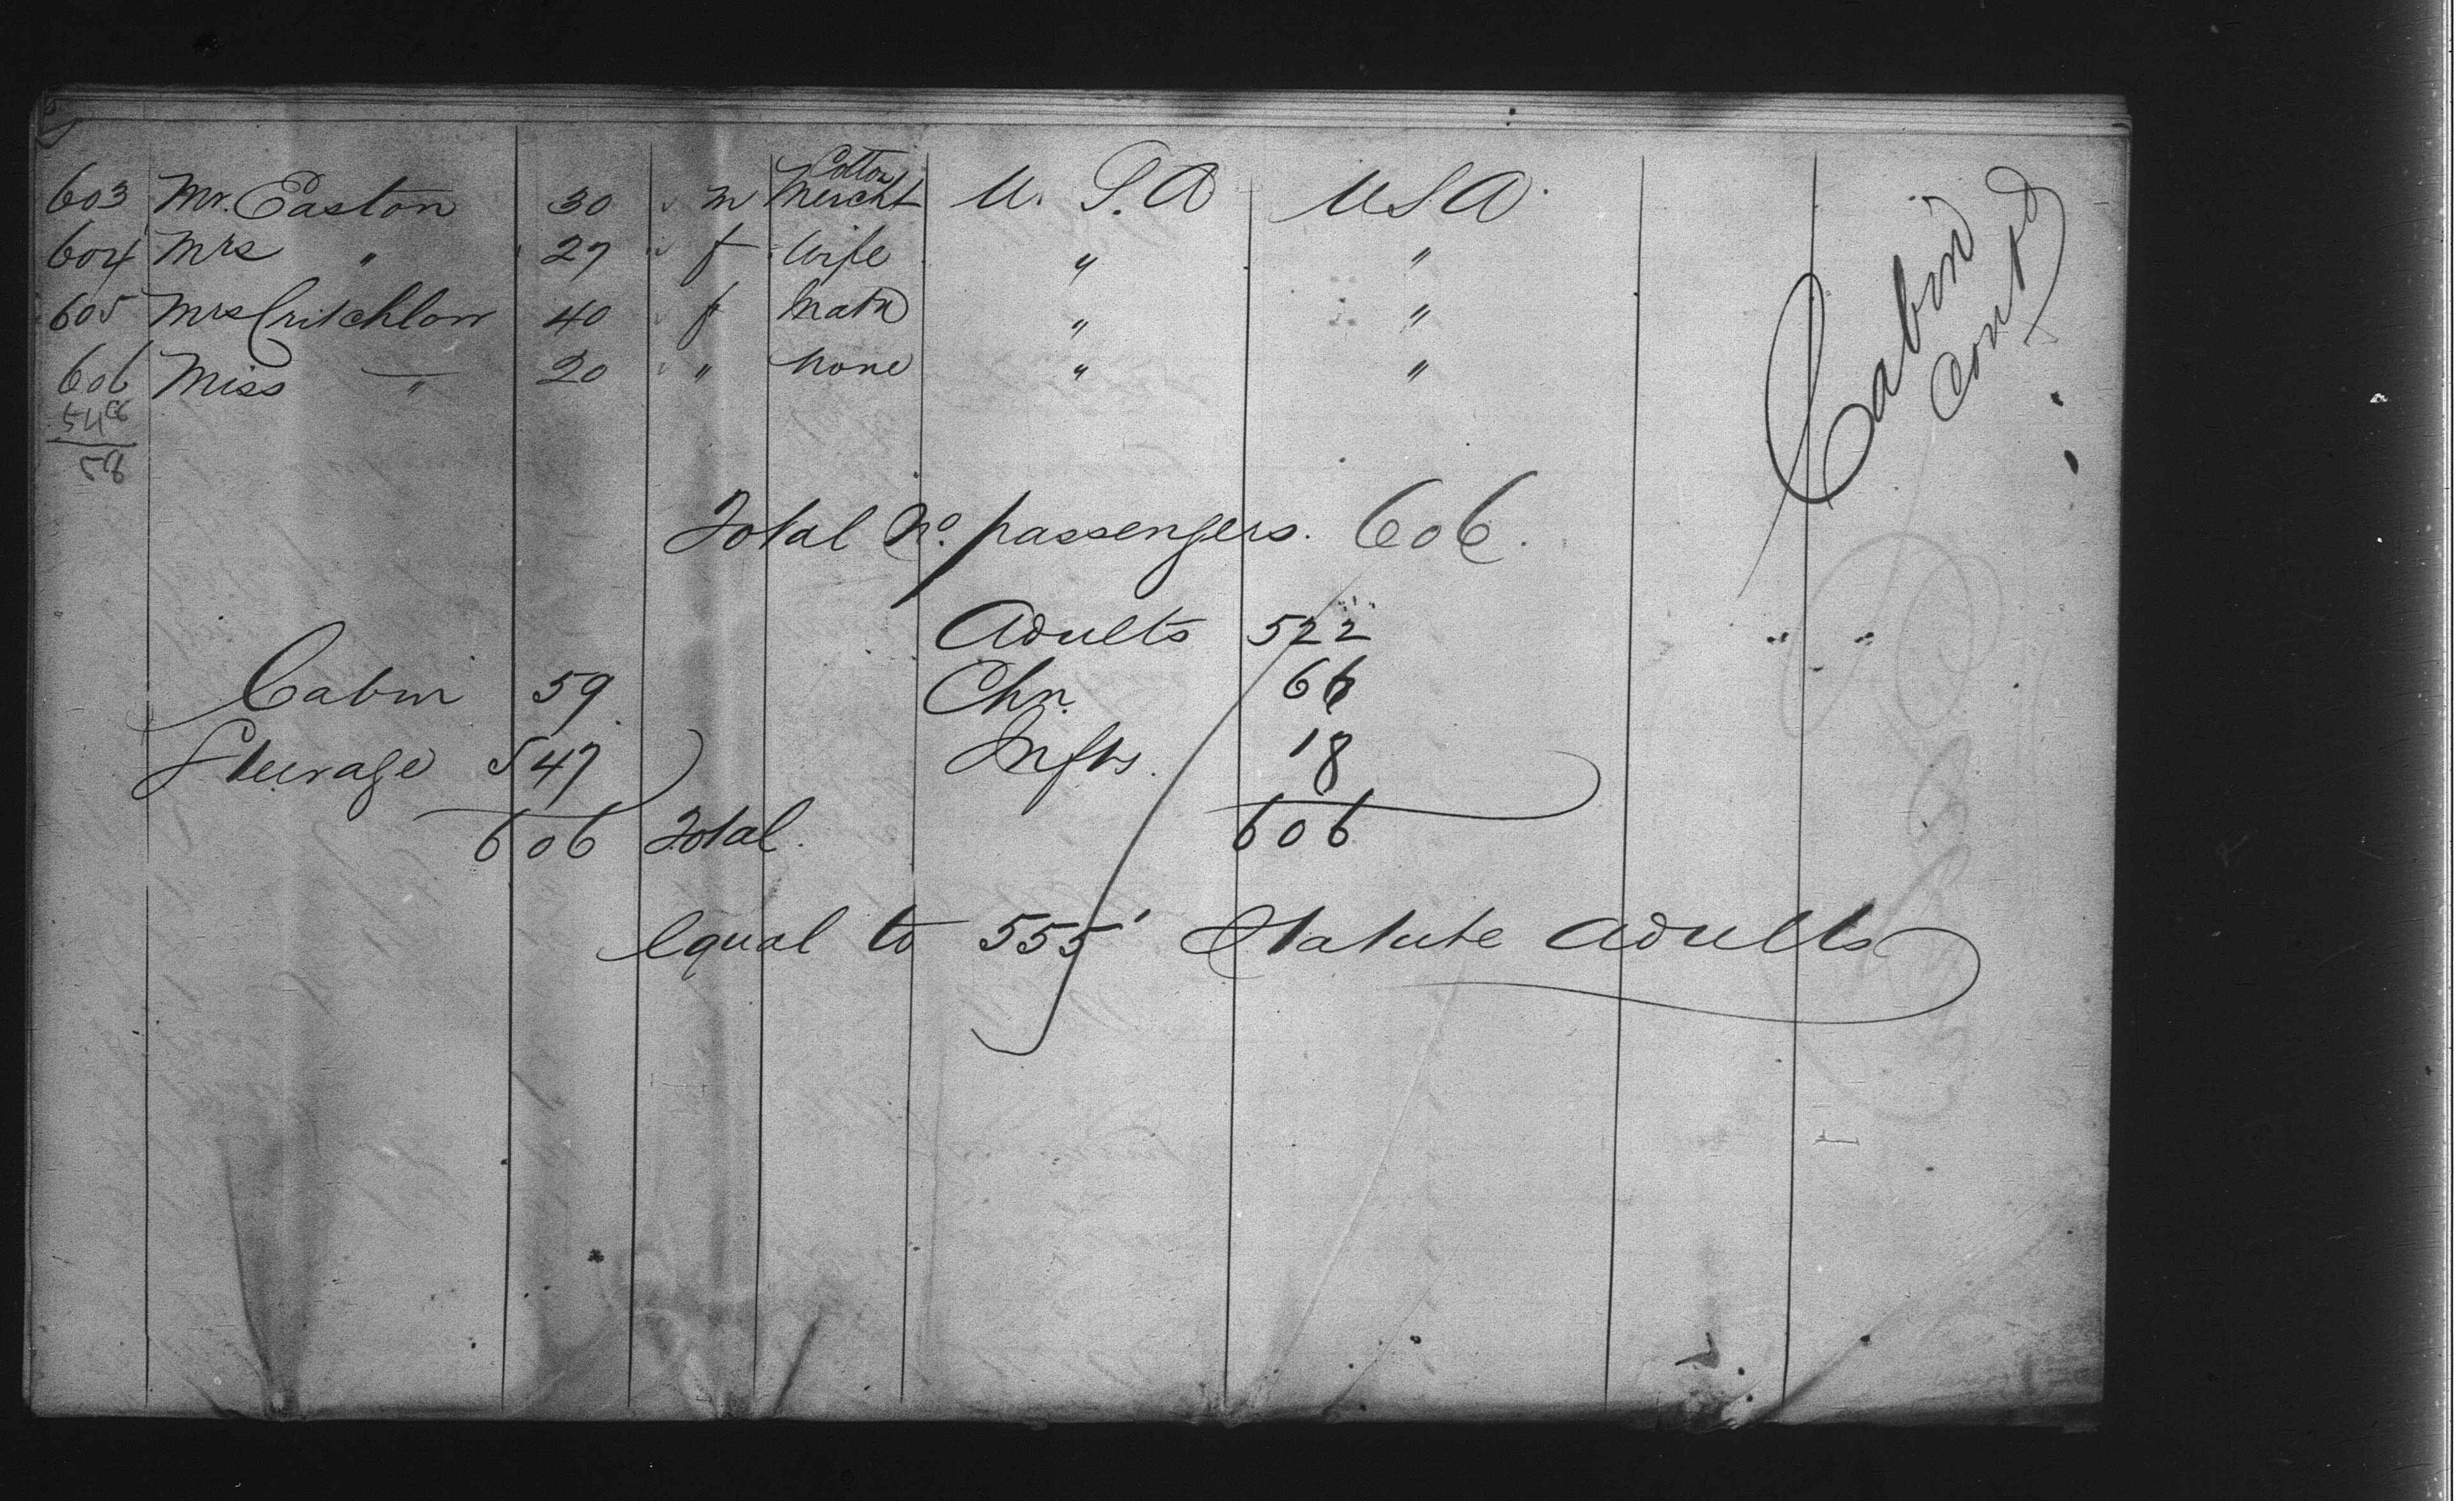 603 Mr. Easton 30 " m Cotton Mercht U. S. A USA.
604 Mrs " 27 " f Wife " "
605 Mrs Critchlow 40 " f Matn " "
606 Miss " 20 " " none " "
548
58
Cabin
Contd
Total No. passengers. 606.
Adults 522
Cabin 59. Chn. 66
Steerage 547 Infts. 18
606 Total. 606
Equal to 555 Statute adults